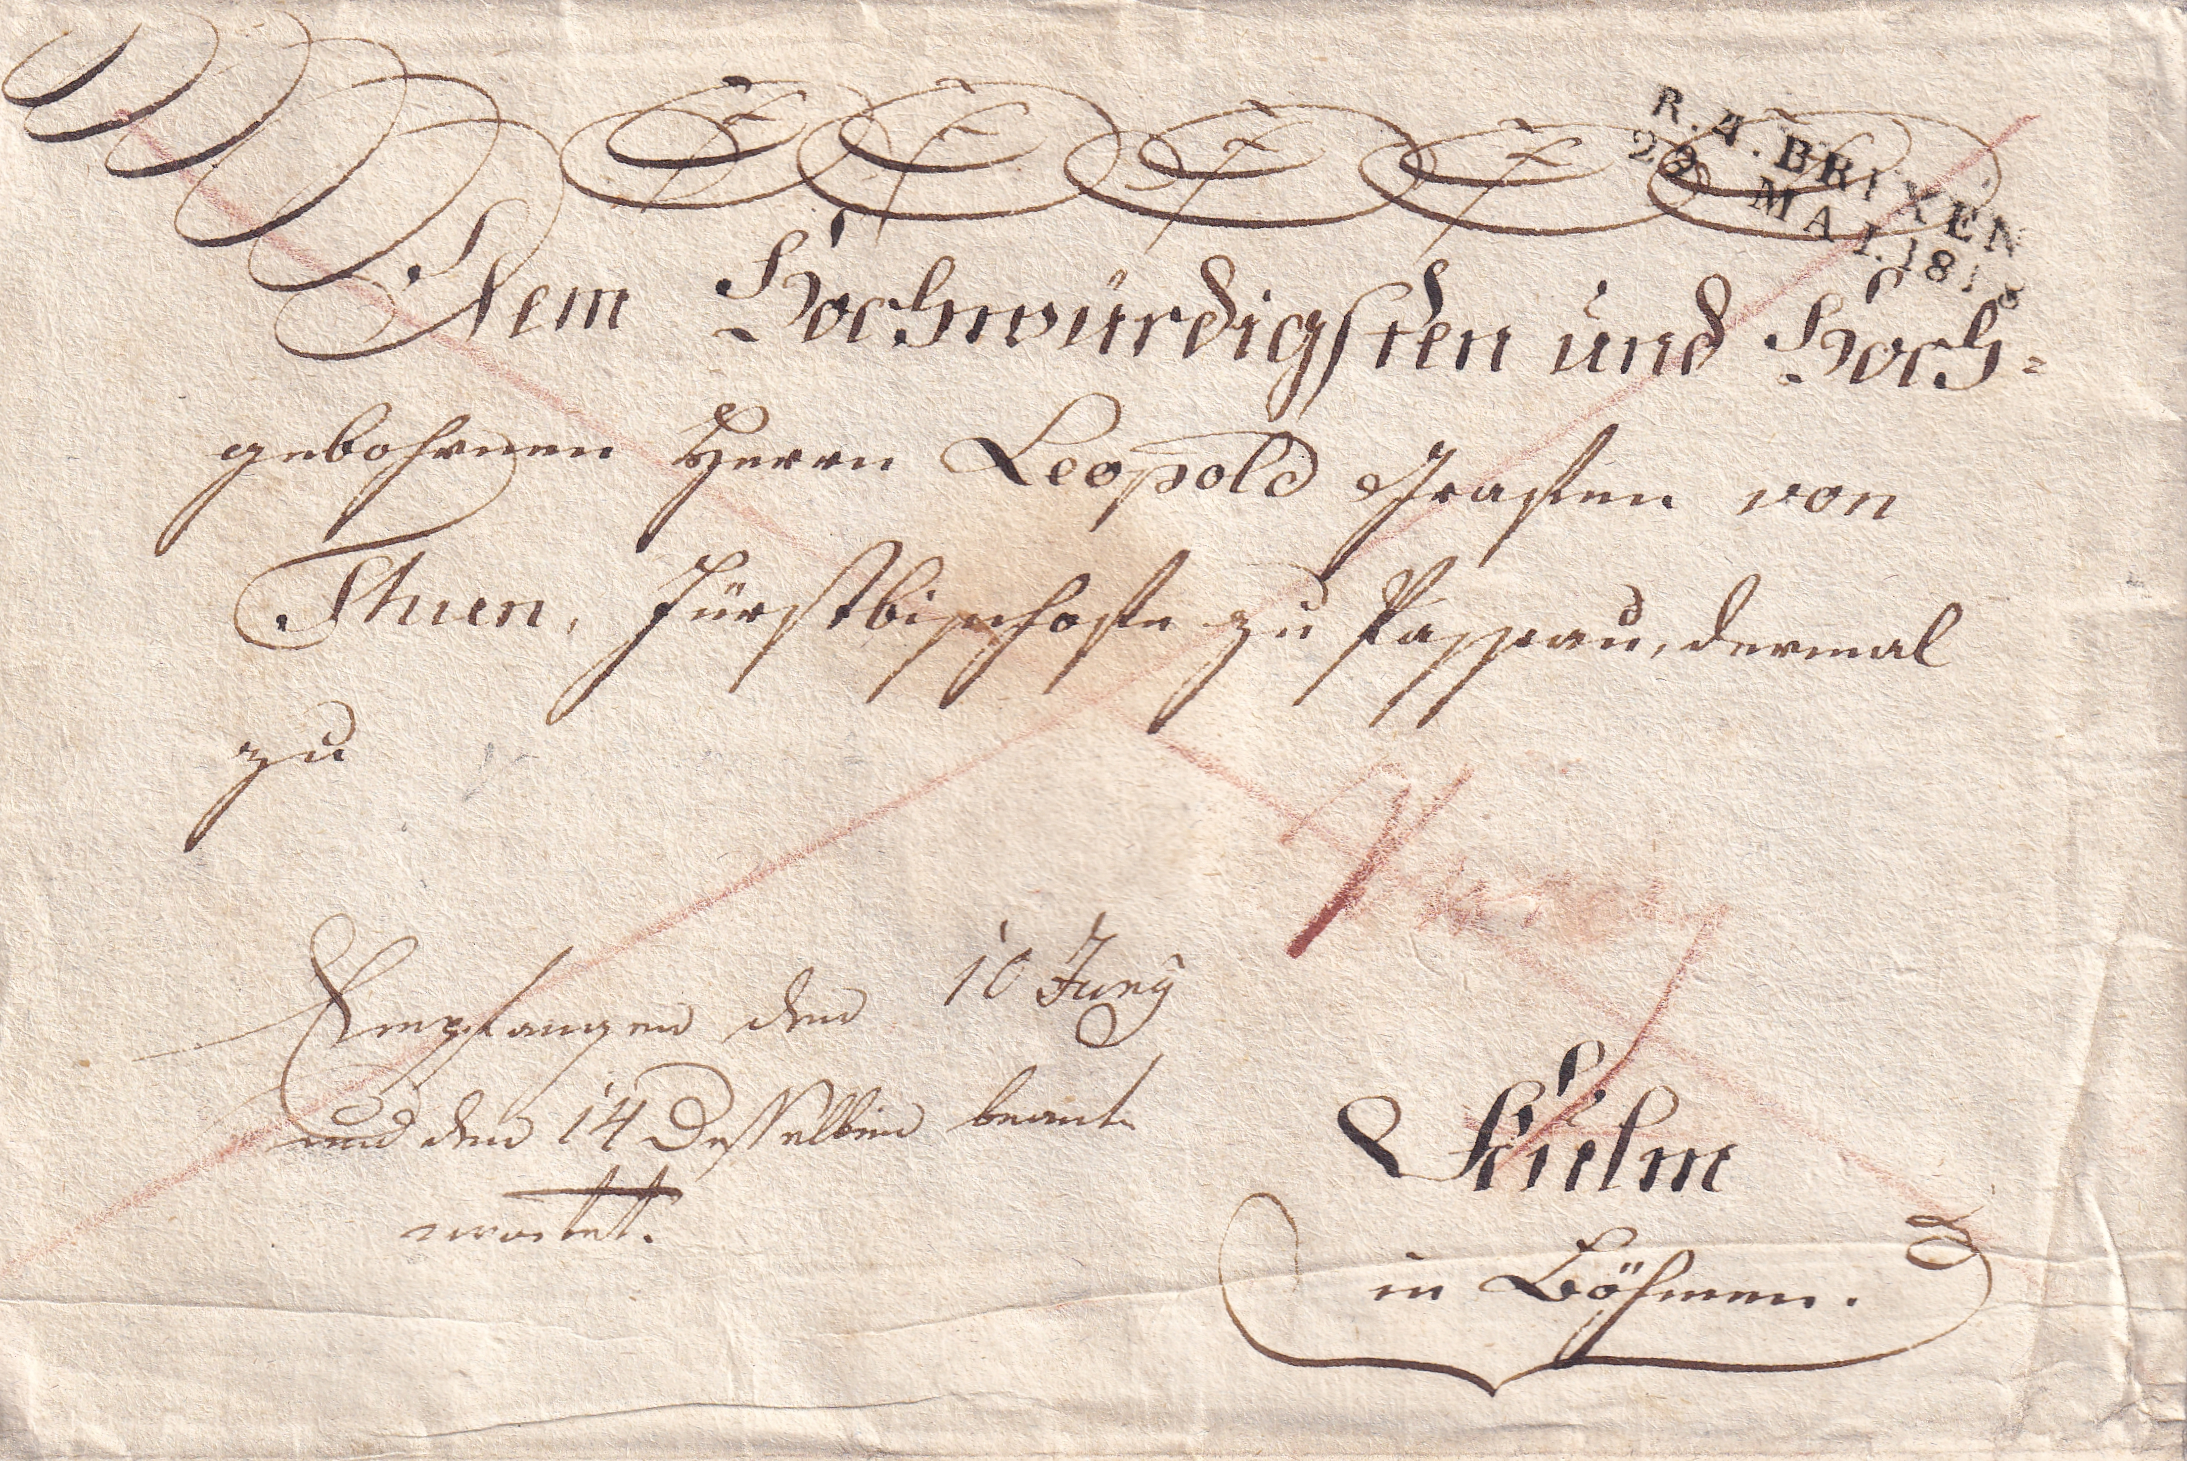 R.4.BRIXEN
29 MAI.1818
Dem Hochwürdigsten und Hoch=
gebohrnen Herrn Leopold Grafen von
Thun, Fürstbischofe zu Passau, dermal
zu
Empfangen den 10 Juny
und den 14 Desselben beant-
wortet.
Kulm
in Böhmen.